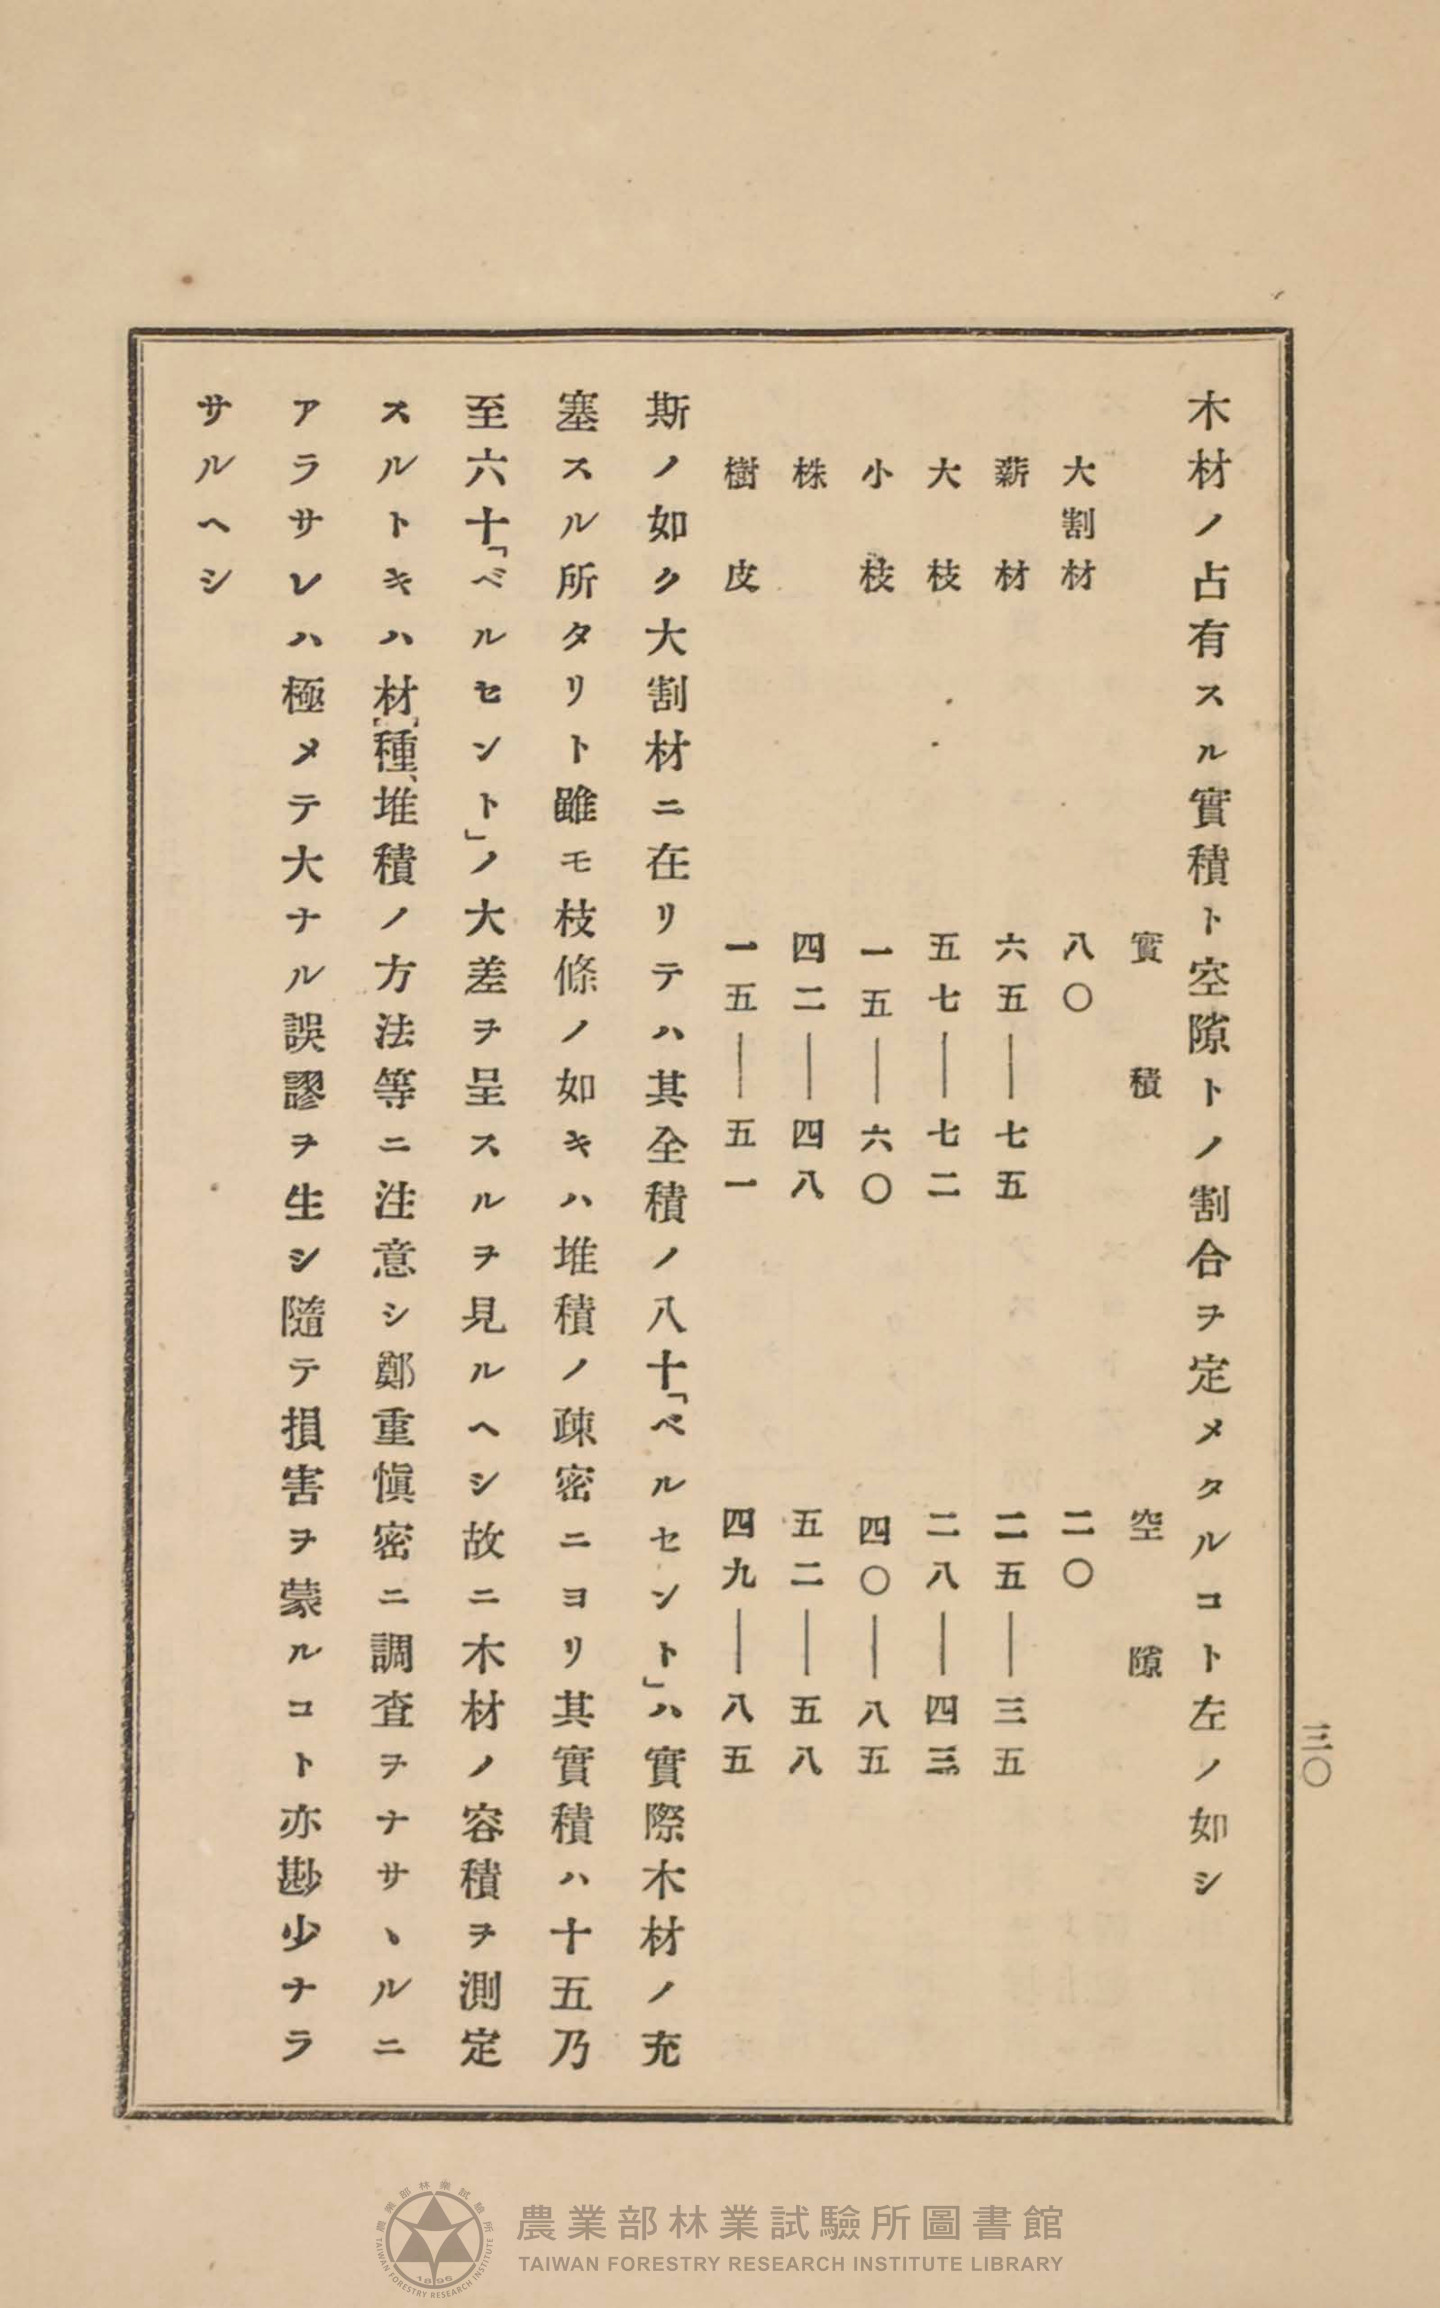 三〇
木材ノ占有スル實積ト空隙トノ割合ヲ定メタルコト左ノ如シ
實積 空隙
大割材 八〇 二〇
薪材 六五——七五 二五——三五
大枝 五七——七二 二八——四三
小枝 一五——六〇 四〇——八五
株 四二——四八 五二——五八
樹皮 一五——五一 四九——八五
斯ノ如ク大割材ニ在リテハ其全積ノ八十「ペルセント」ハ實際木材ノ充
塞スル所タリト雖モ枝條ノ如キハ堆積ノ疎密ニヨリ其實積ハ十五乃
至六十「ベルセント」ノ大差ヲ呈スルヲ見ルヘシ故ニ木材ノ容積ヲ測定
スルトキハ材種、堆積ノ方法等ニ注意シ鄭重愼密ニ調査ヲナサヽルニ
アラサレハ極メテ大ナル誤謬ヲ生シ隨テ損害ヲ蒙ルコト亦尠少ナラ
サルヘシ
農業部林業試驗所圖書館
TAIWAN FORESTRY RESEARCH INSTITUTE LIBRARY
農業部林業試驗所
TAIWAN FORESTRY RESEARCH INSTITUTE
1896